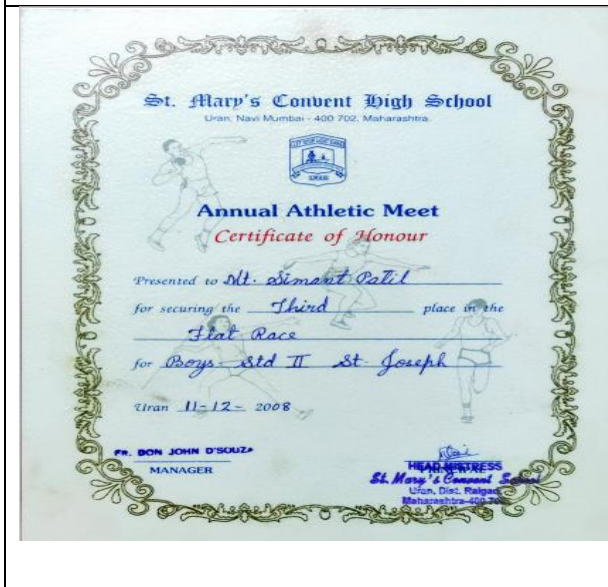 St. Mary's Convent High School
Uran, Navi Mumbai - 400 702, Maharashtra.
LET YOUR LIGHT SHINE
URAN
Annual Athletic Meet
Certificate of Honour
Presented to Mt. Simant Patil
for securing the Third place in the
Flat Race
for Boys Std II St. Joseph
Uran 11-12- 2008
FR. DON JOHN D'SOUZA
MANAGER
HEAD MISTRESS
St. Mary's Convent School
Uran, Dist. Raigad
Maharashtra-400 702